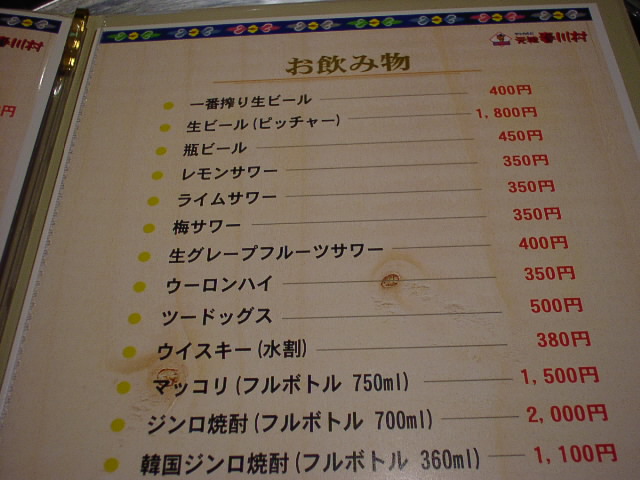 元祖 春川村
お飲み物
一番搾り生ビール 400円
生ビール(ピッチャー) 1,800円
瓶ビール 450円
レモンサワー 350円
ライムサワー 350円
梅サワー 350円
生グレープフルーツサワー 400円
ウーロンハイ 350円
ツードッグス 500円
ウイスキー(水割) 380円
マッコリ(フルボトル 750ml) 1,500円
ジンロ焼酎(フルボトル 700ml) 2,000円
韓国ジンロ焼酎(フルボトル 360ml) 1,100円
円